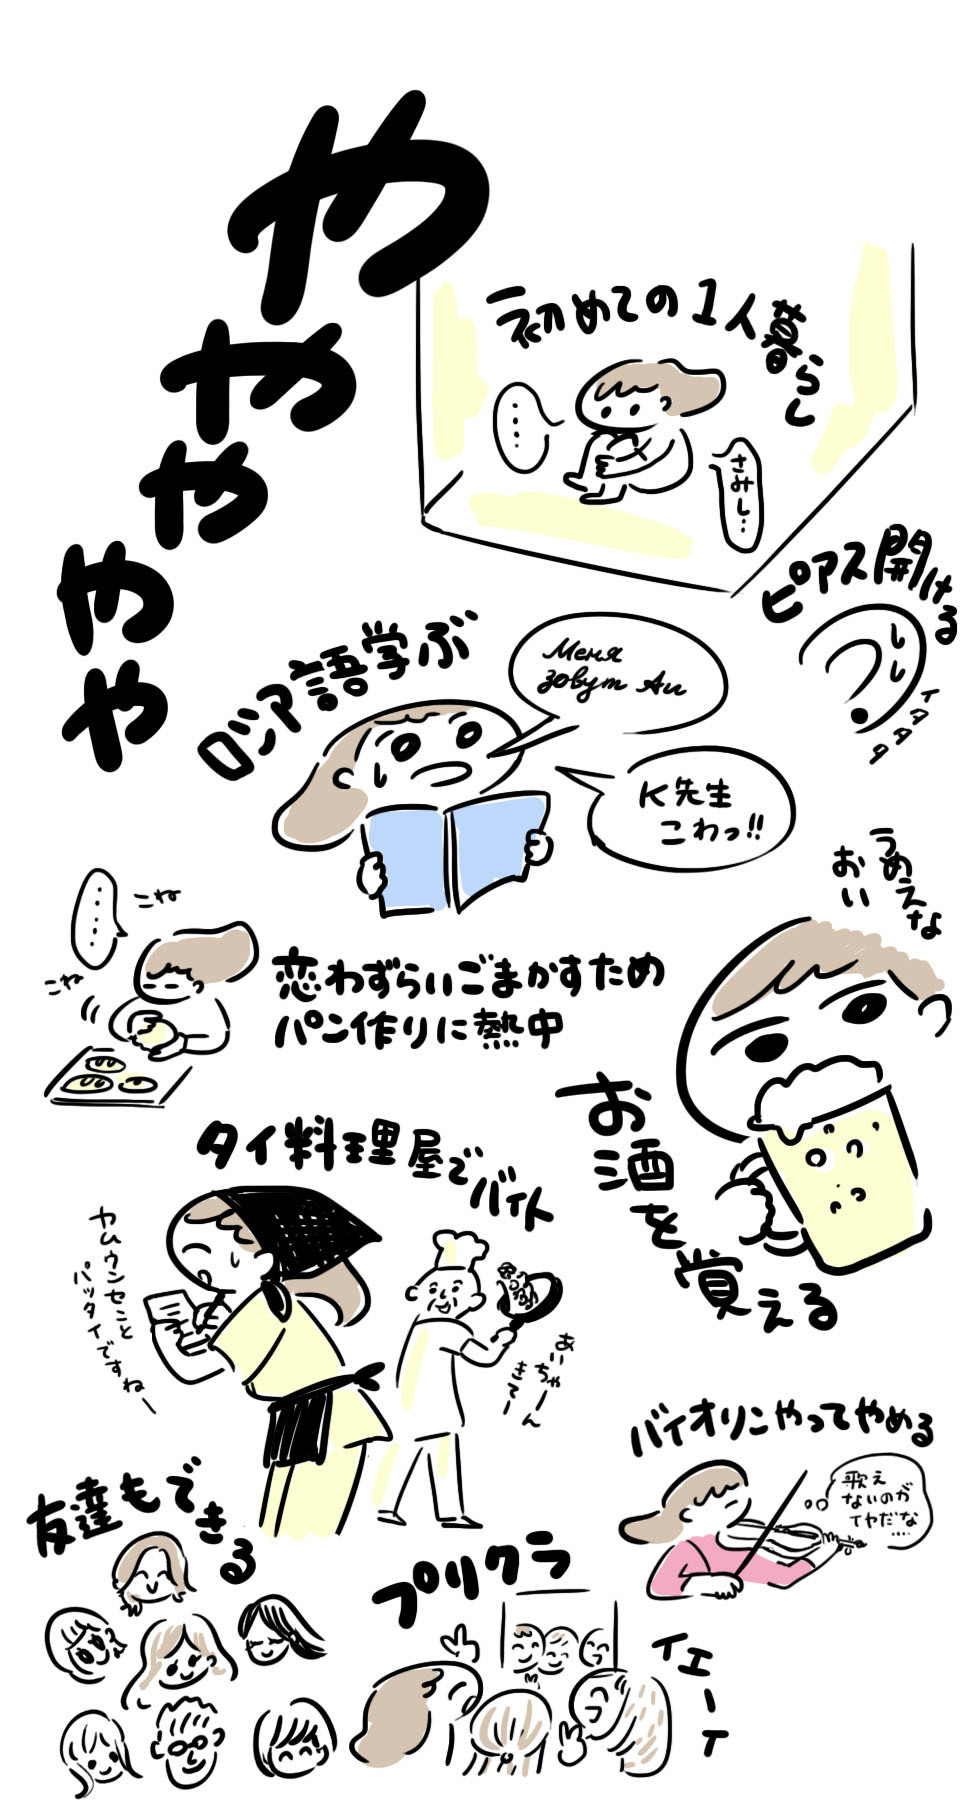 や
や
や
や
や
初めての1人暮らし
・・・・
さみし…
ピアス開ける
イタタタ
ロシア語学ぶ
Меня
зовут Аи
K先生
こわっ!!
うめえな
おい
お酒を覚える
・・・・
こね
こね
恋わずらいごまかすため
パン作りに熱中
タイ料理屋でバイト
ヤムウンセンこと
パッタイですねー
あいちゃーん
きてー
バイオリンやってやめる
歌え
ないのが
イヤだな
‥‥
友達もできる
プリクラ
イエーイ